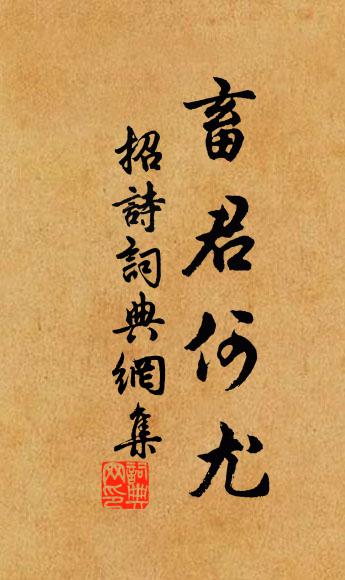 畜君何尤
招詩詞典網集
詞典網印